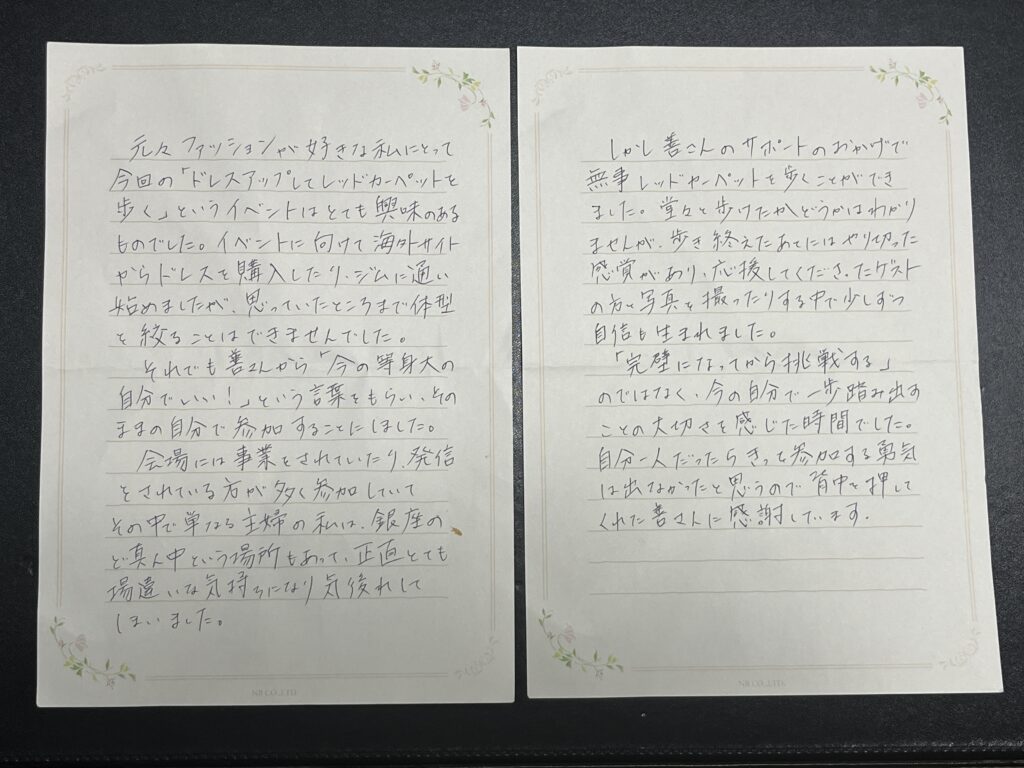 元々ファッションが好きな私にとって
今回の「ドレスアップしてレッドカーペットを
歩く」というイベントはとても興味のある
ものでした。イベントに向けて海外サイト
からドレスを購入したり、ジムに通い
始めましたが、思っていたところまで体型
を絞ることはできませんでした。
それでも善さんから「今の等身大の
自分でいい!」という言葉をもらい、その
ままの自分で参加することにしました。
会場には事業をされていたり、発信
をされている方が多く参加していて
その中で単なる主婦の私は、銀座の
ど真ん中という場所もあって、正直とても
場違いな気持ちになり気後れして
しまいました。
NB CO.,LTD.
しかし善さんのサポートのおかげで
無事レッドカーペットを歩くことができ
ました。堂々と歩けたかどうかはわかり
ませんが、歩き終えたあとにはやり切った
感覚があり、応援してくださったゲスト
の方と写真を撮ったりする中で少しずつ
自信も生まれました。
「完璧になってから挑戦する」
のではなく、今の自分で一歩踏み出す
ことの大切さを感じた時間でした。
自分一人だったらきっと参加する勇気
は出なかったと思うので背中を押して
くれた善さんに感謝しています。
NB CO.,LTD.